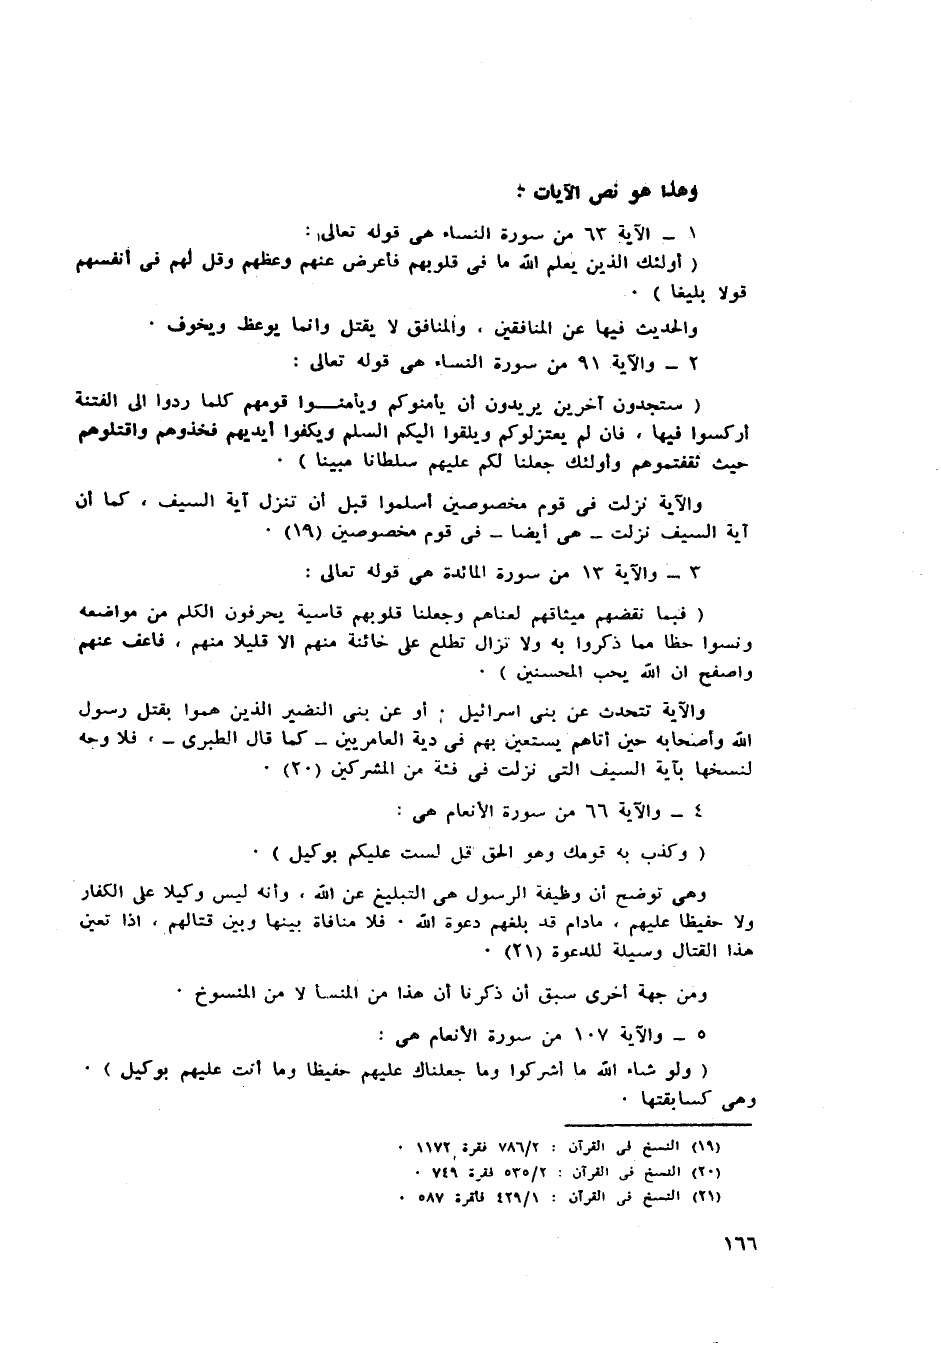 وهذا هو نص الآيات :
١ ـ الآية ٦٣ من سورة النساء هى قوله تعالى :
( أولئك الذين يعلم الله ما فى قلوبهم فأعرض عنهم وعظهم وقل لهم فى أنفسهم
قولا بليغا ) ٠
والحديث فيها عن المنافقين ، والمنافق لا يقتل وانما يوعظ ويخوف ٠
٢ ـ والآية ٩١ من سورة النساء هى قوله تعالى :
( ستجدون آخرين يريدون أن يأمنوكم ويأمنـــوا قومهم كلما ردوا الى الفتنة
أركسوا فيها ، فان لم يعتزلوكم ويلقوا اليكم السلم ويكفوا أيديهم فخذوهم واقتلوهم
حيث ثقفتموهم وأولئك جعلنا لكم عليهم سلطانا مبينا ) ٠
والآية نزلت فى قوم مخصوصين أسلموا قبل أن تنزل آية السيف ، كما أن
آية السيف نزلت ـ هى أيضا ـ فى قوم مخصوصين (١٩) ٠
٣ ـ والآية ١٣ من سورة المائدة هى قوله تعالى :
( فبما نقضهم ميثاقهم لعناهم وجعلنا قلوبهم قاسية يحرفون الكلم من مواضعه
ونسوا حظا مما ذكروا به ولا تزال تطلع على خائنة منهم الا قليلا منهم ، فاعف عنهم
واصفح ان الله يحب المحسنين ) ٠
والآية تتحدث عن بنى اسرائيل : أو عن بنى النضير الذين هموا بقتل رسول
الله وأصحابه حين أتاهم يستعين بهم فى دية العامريين ـ كما قال الطبرى ـ ، فلا وجه
لنسخها بآية السيف التى نزلت فى فئة من المشركين (٢٠) ٠
٤ ـ والآية ٦٦ من سورة الأنعام هى :
( وكذب به قومك وهو الحق قل لست عليكم بوكيل ) ٠
وهى توضح أن وظيفة الرسول هى التبليغ عن الله ، وأنه ليس وكيلا على الكفار
ولا حفيظا عليهم ، مادام قد بلغهم دعوة الله ٠ فلا منافاة بينها وبين قتالهم ، اذا تعين
هذا القتال وسيلة للدعوة (٢١) ٠
ومن جهة أخرى سبق أن ذكرنا أن هذا من المنسأ لا من المنسوخ ٠
٥ ـ والآية ١٠٧ من سورة الأنعام هى :
( ولو شاء الله ما أشركوا وما جعلناك عليهم حفيظا وما أنت عليهم بوكيل ) ٠
وهى كسابقتها ٠
(١٩) النسخ فى القرآن : ٧٨٦/٢ فقرة ١١٧٢ ٠
(٢٠) النسخ فى القرآن : ٥٣٥/٢ فقرة ٧٤٩ ٠
(٢١) النسخ فى القرآن : ٤٢٩/١ فاقرة ٥٨٧ ٠
١٦٦